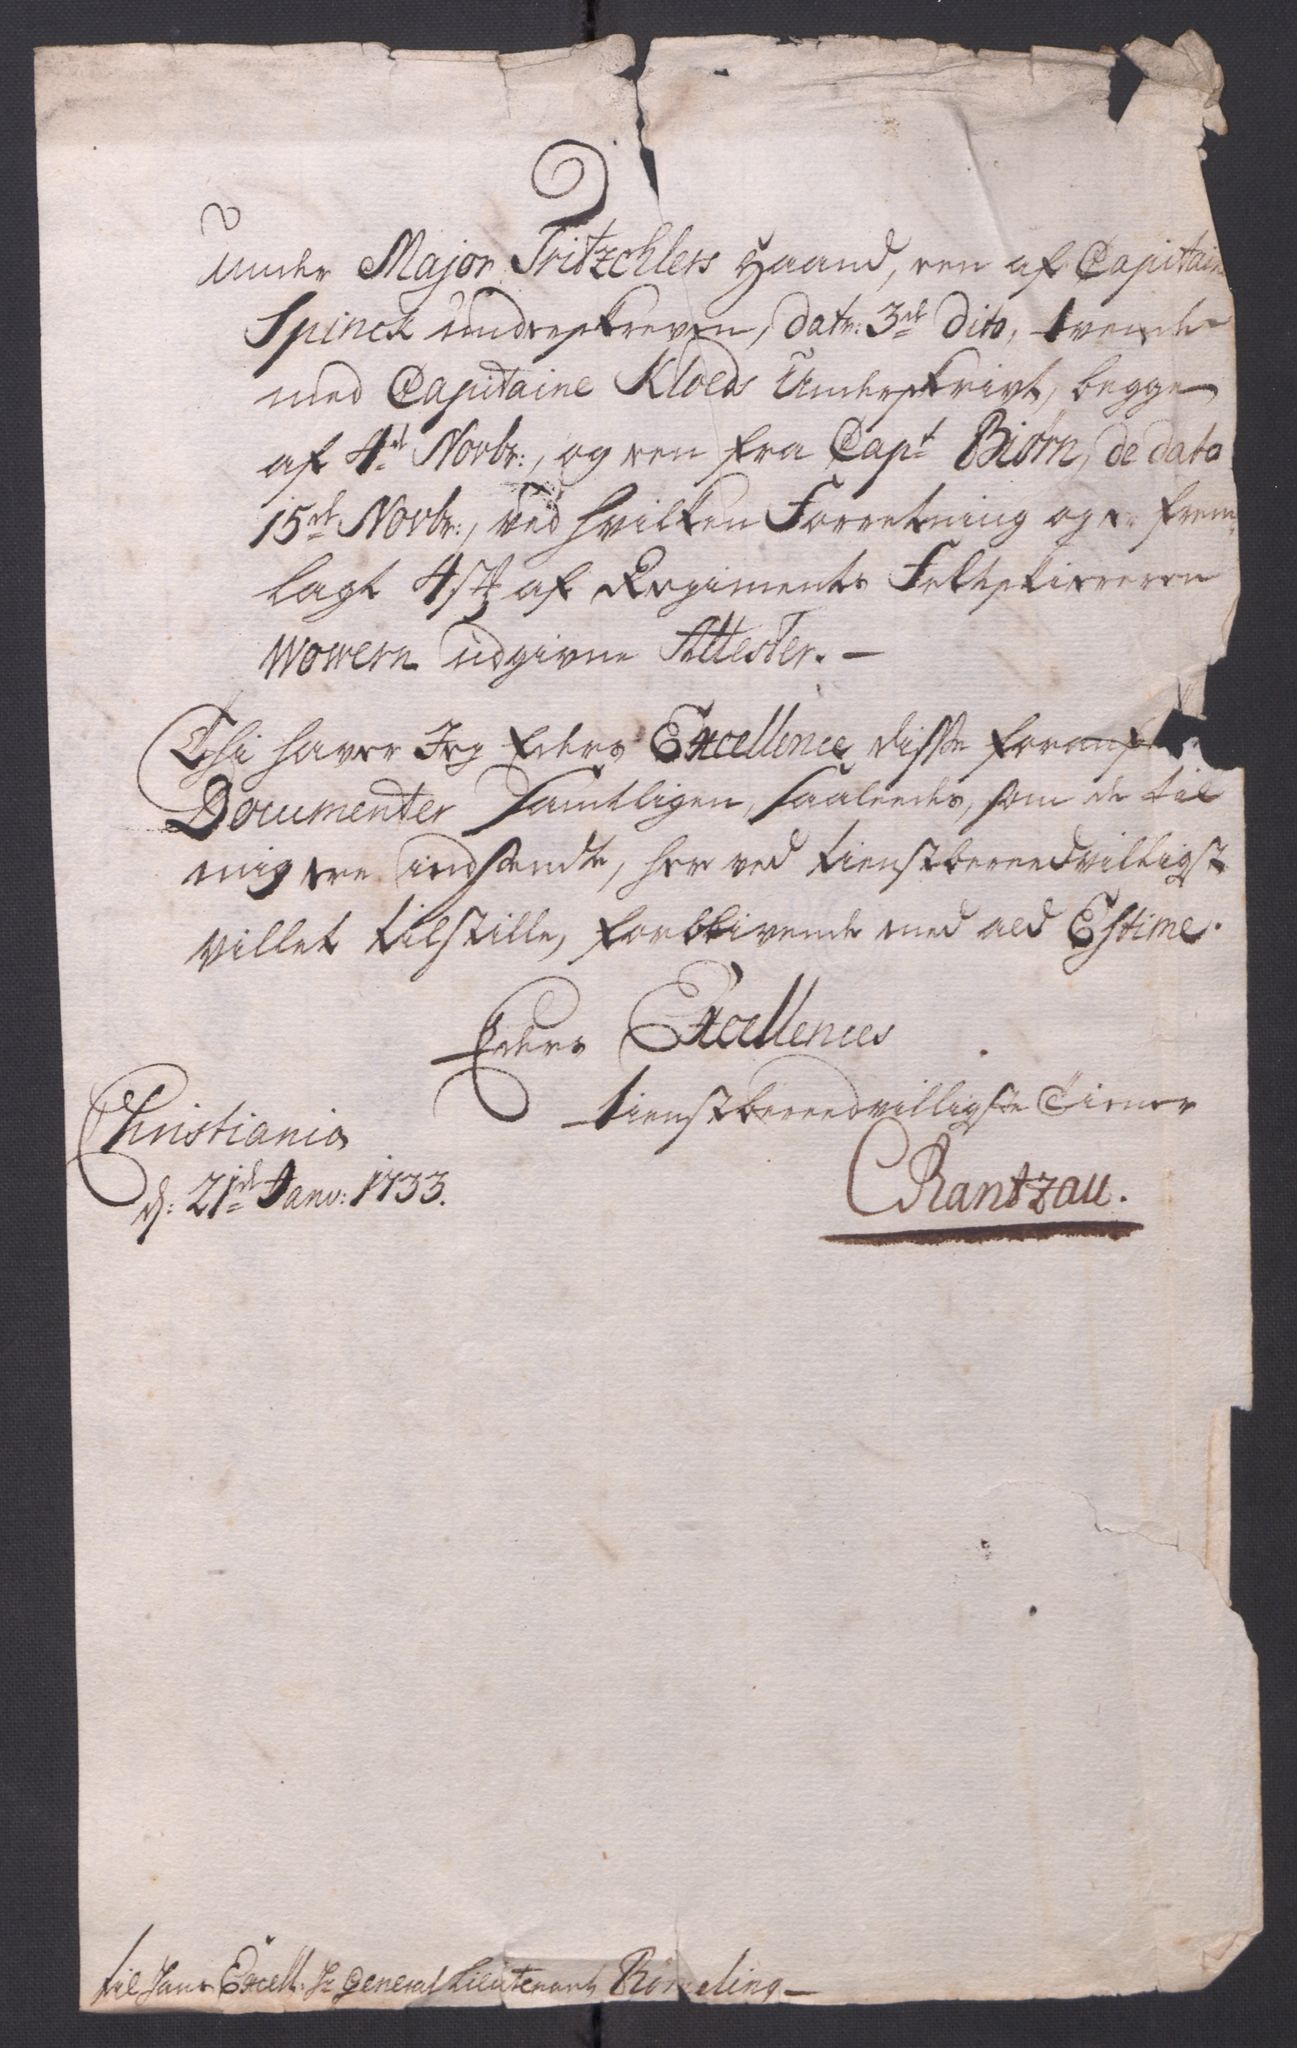 Under Major Fritzchlers Haand, een af Capitain
Spinck underskreven, datr: 3de dito, tvende
med Capitaine Kloeds Underskrivt, begge
af 4de Novbr:, og een fra Capt Biørn, de dato
15de Novbr:, ved hvilken Forretning og er frem-
lagt 4 st af Regiments Feltskiereren
Wowern udgivne Attester. —
Thi haver Jeg Eders Excellence disse
Documenter samtligen, saaleedes, som de til
mig ere indsendte, her ved tienstbereedvilligst
villet tilstille, forblivende med ald Estime.
Eders Excellences
tienstbereedvilligste Tiener
Christiania
d: 21de Janv: 1733.
CRantzau.
til Hans Excell: Hr General Lieutenant Rømeling —